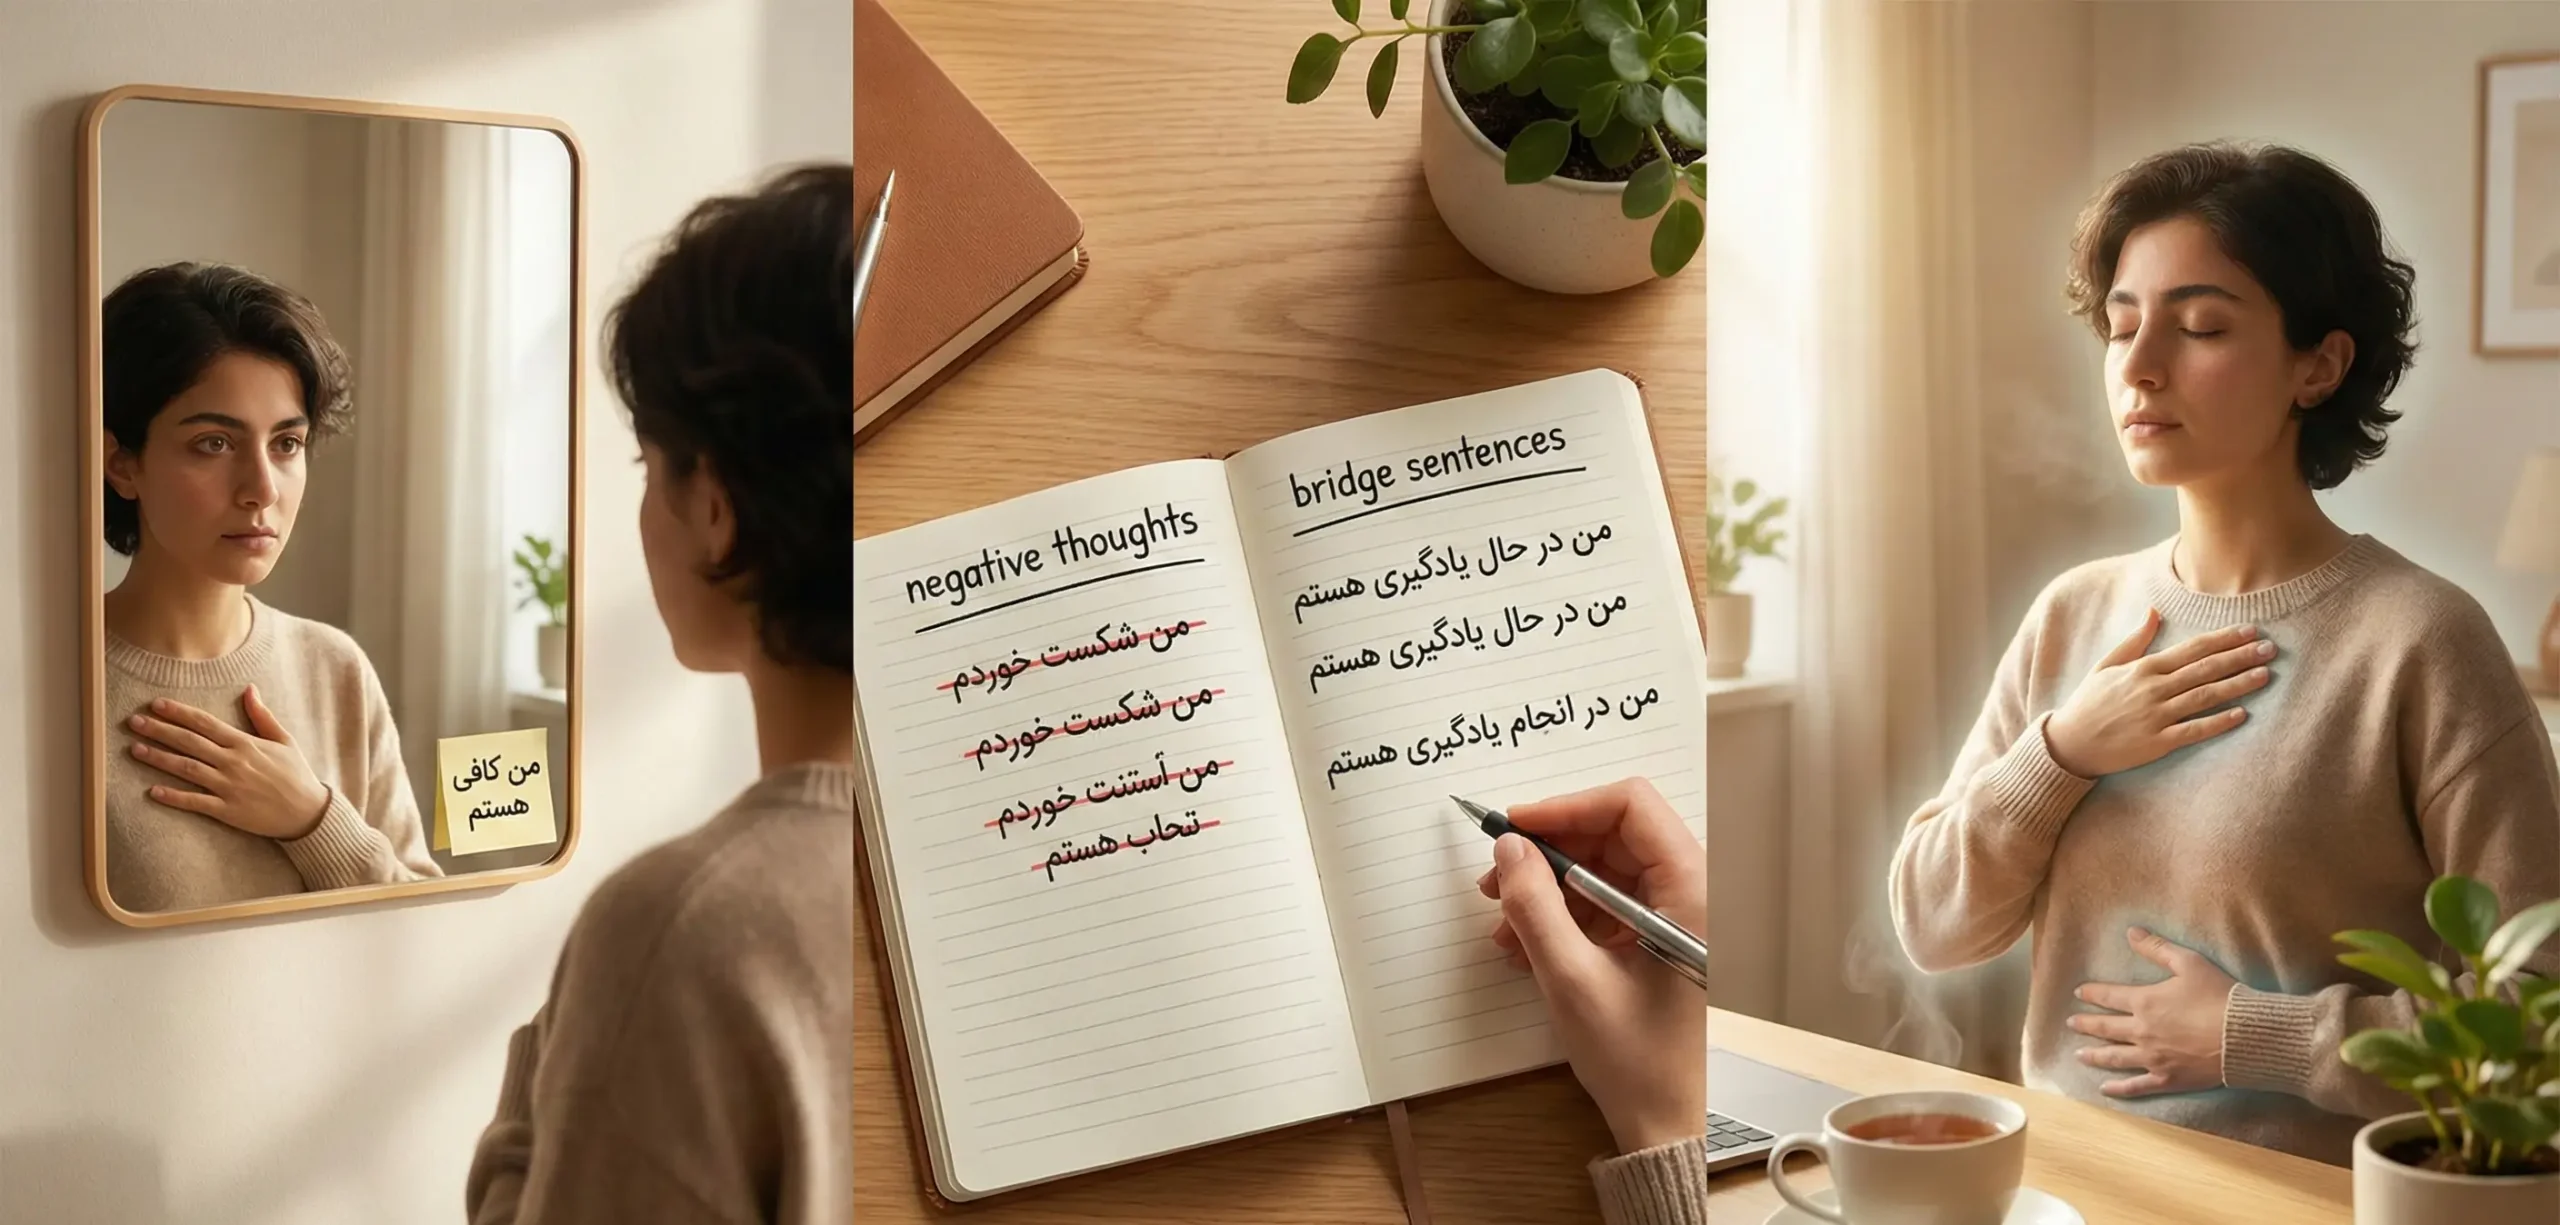 من کافی
هستم
negative thoughts
من شکست خوردم
من شکست خوردم
من آستنت خوردم
تتحاب هستم
bridge sentences
من در حال یادگیری هستم
من در حال یادگیری هستم
من در انجام یادگیری هستم